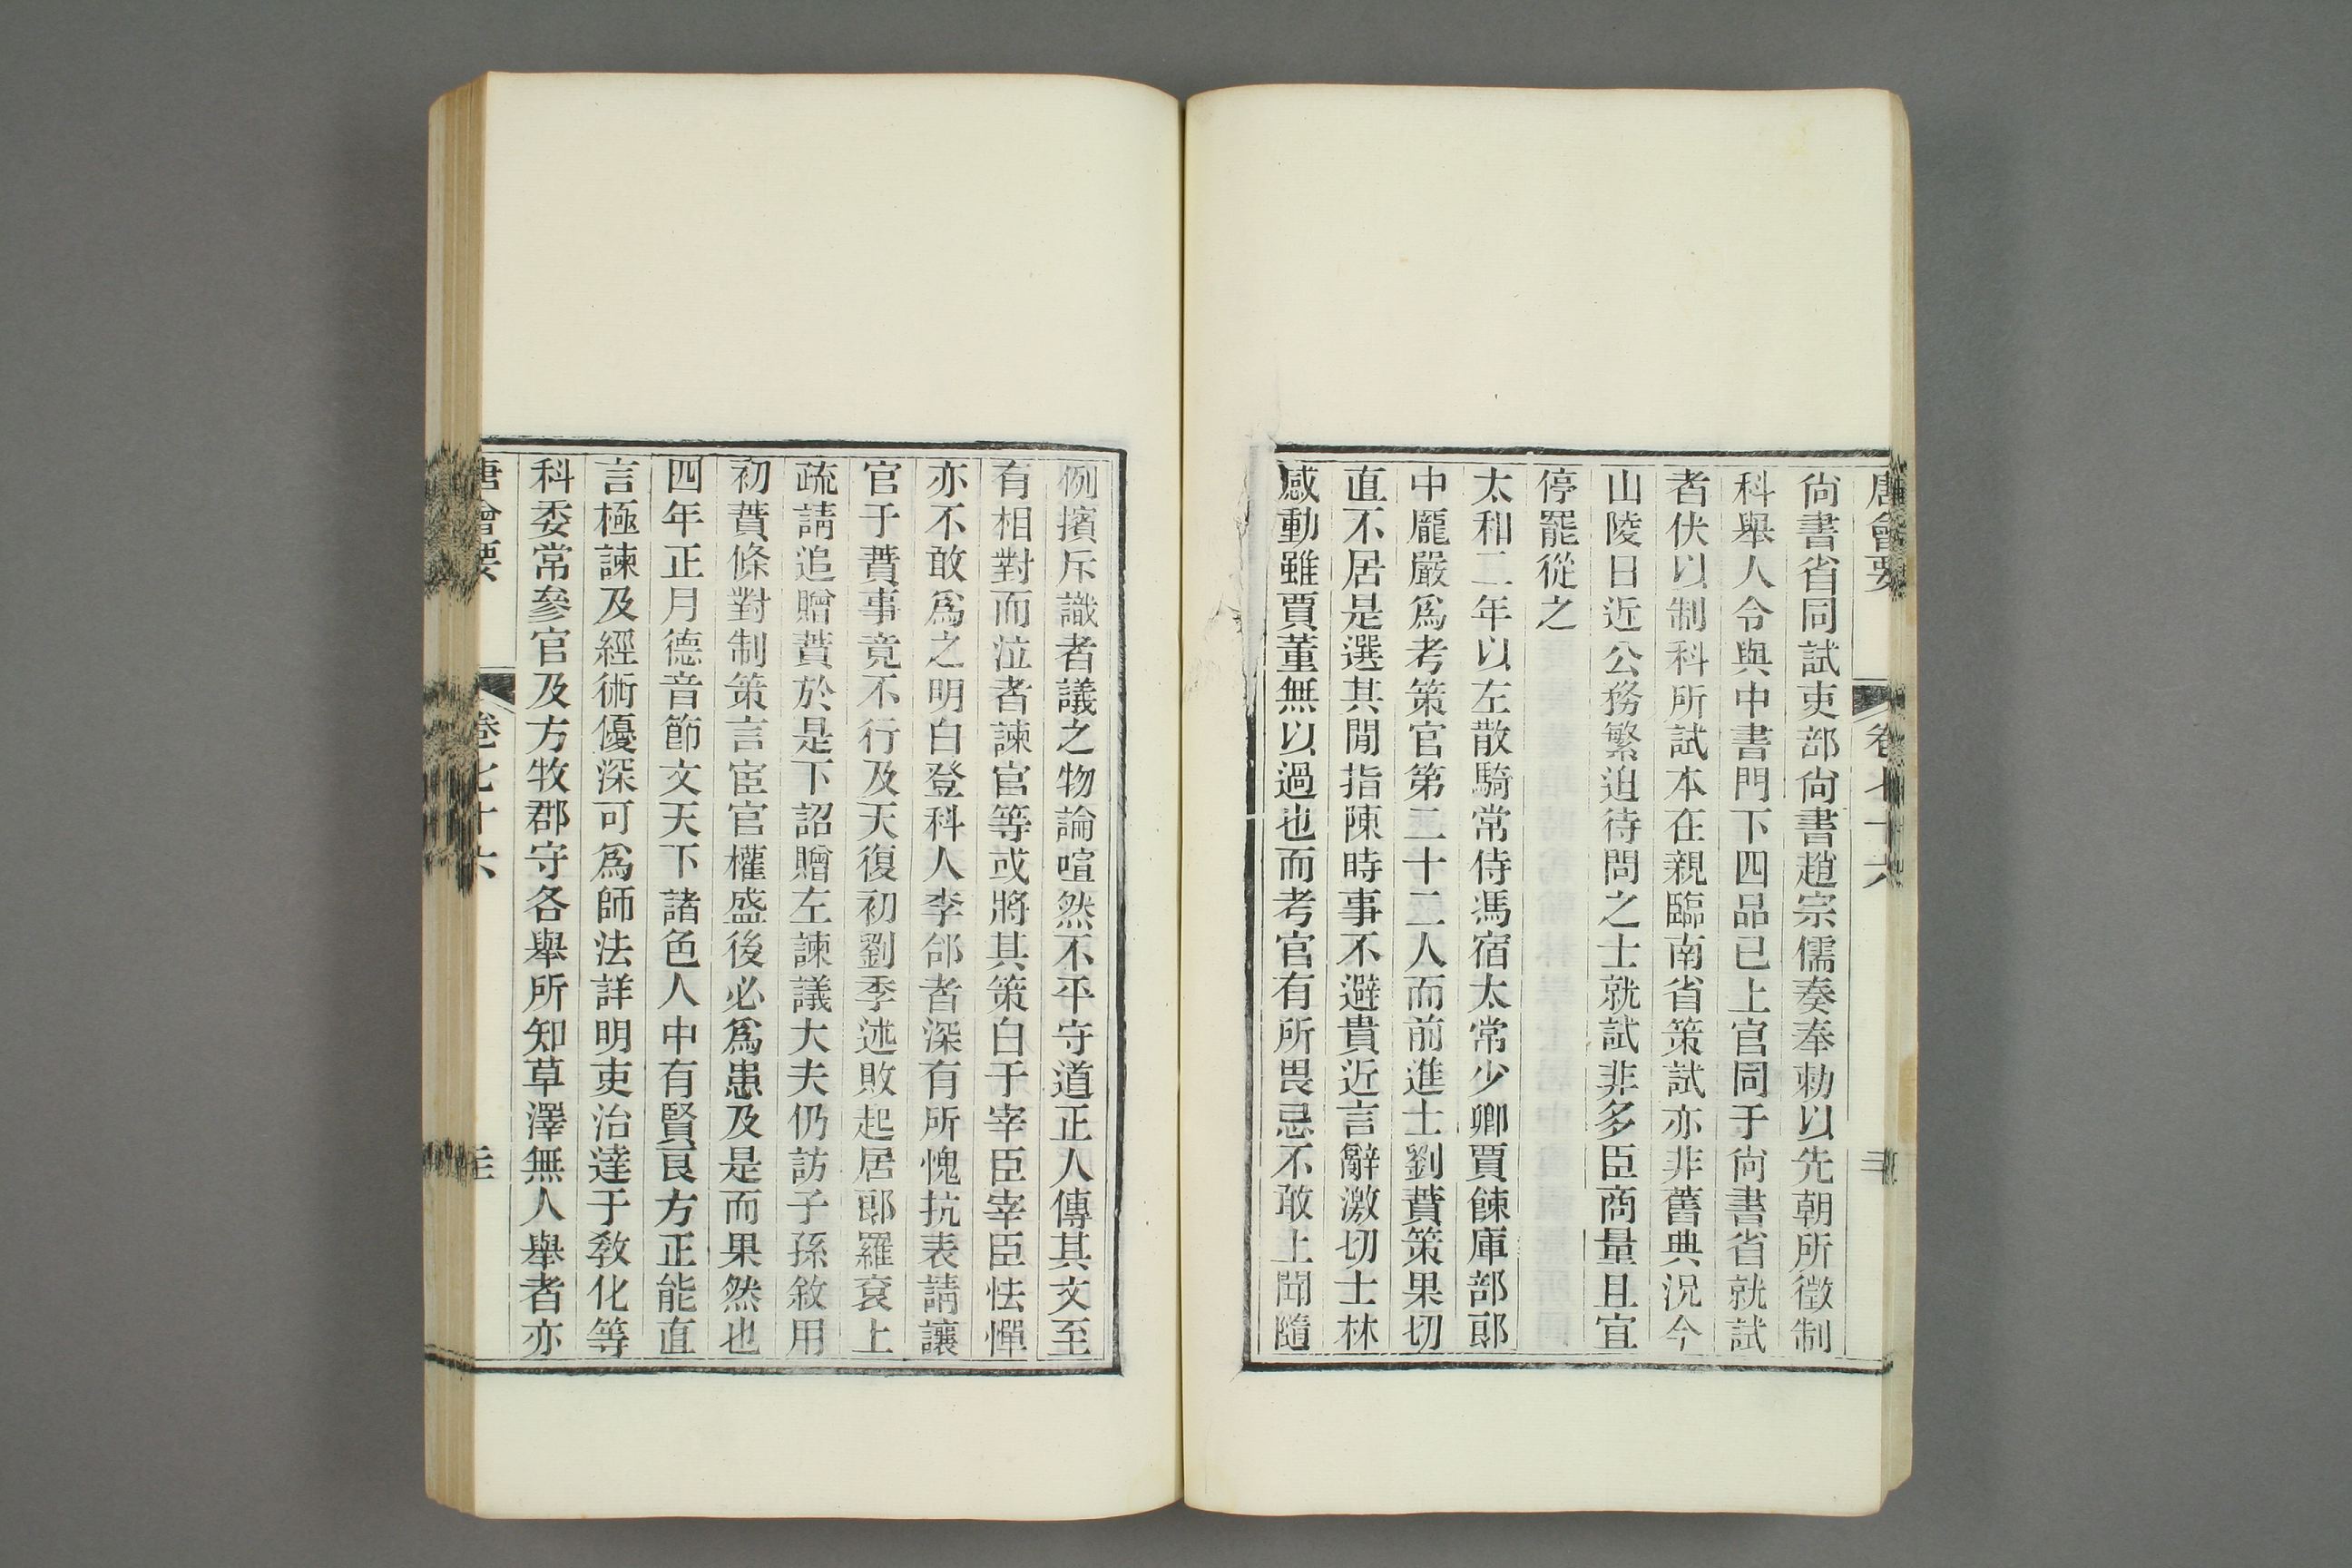 唐會要 卷七十六
尙書省同試吏部尙書趙宗儒奏奉勅以先朝所徵制
科舉人令與中書門下四品已上官同于尙書省就試
者伏以制科所試本在親臨南省策試亦非舊典況今
山陵日近公務繁迫待問之士就試非多臣商量且宜
停罷從之
太和二年以左散騎常侍馮宿太常少卿賈餗庫部郎
中龐嚴爲考策官第二十二人而前進士劉蕡策果切
直不居是選其閒指陳時事不避貴近言辭激切士林
感動雖賈董無以過也而考官有所畏忌不敢上聞隨
例擯斥識者議之物論喧然不平守道正人傳其文至
有相對而泣者諫官等或將其策白于宰臣宰臣怯憚
亦不敢爲之明白登科人李郃者深有所愧抗表請讓
官于蕡事竟不行及天復初劉季述敗起居郎羅袞上
疏請追贈蕡於是下詔贈左諫議大夫仍訪子孫敘用
初蕡條對制策言宦官權盛後必爲患及是而果然也
四年正月德音節文天下諸色人中有賢良方正能直
言極諫及經術優深可爲師法詳明吏治達于敎化等
科委常參官及方牧郡守各舉所知草澤無人舉者亦
唐會要 卷七十六